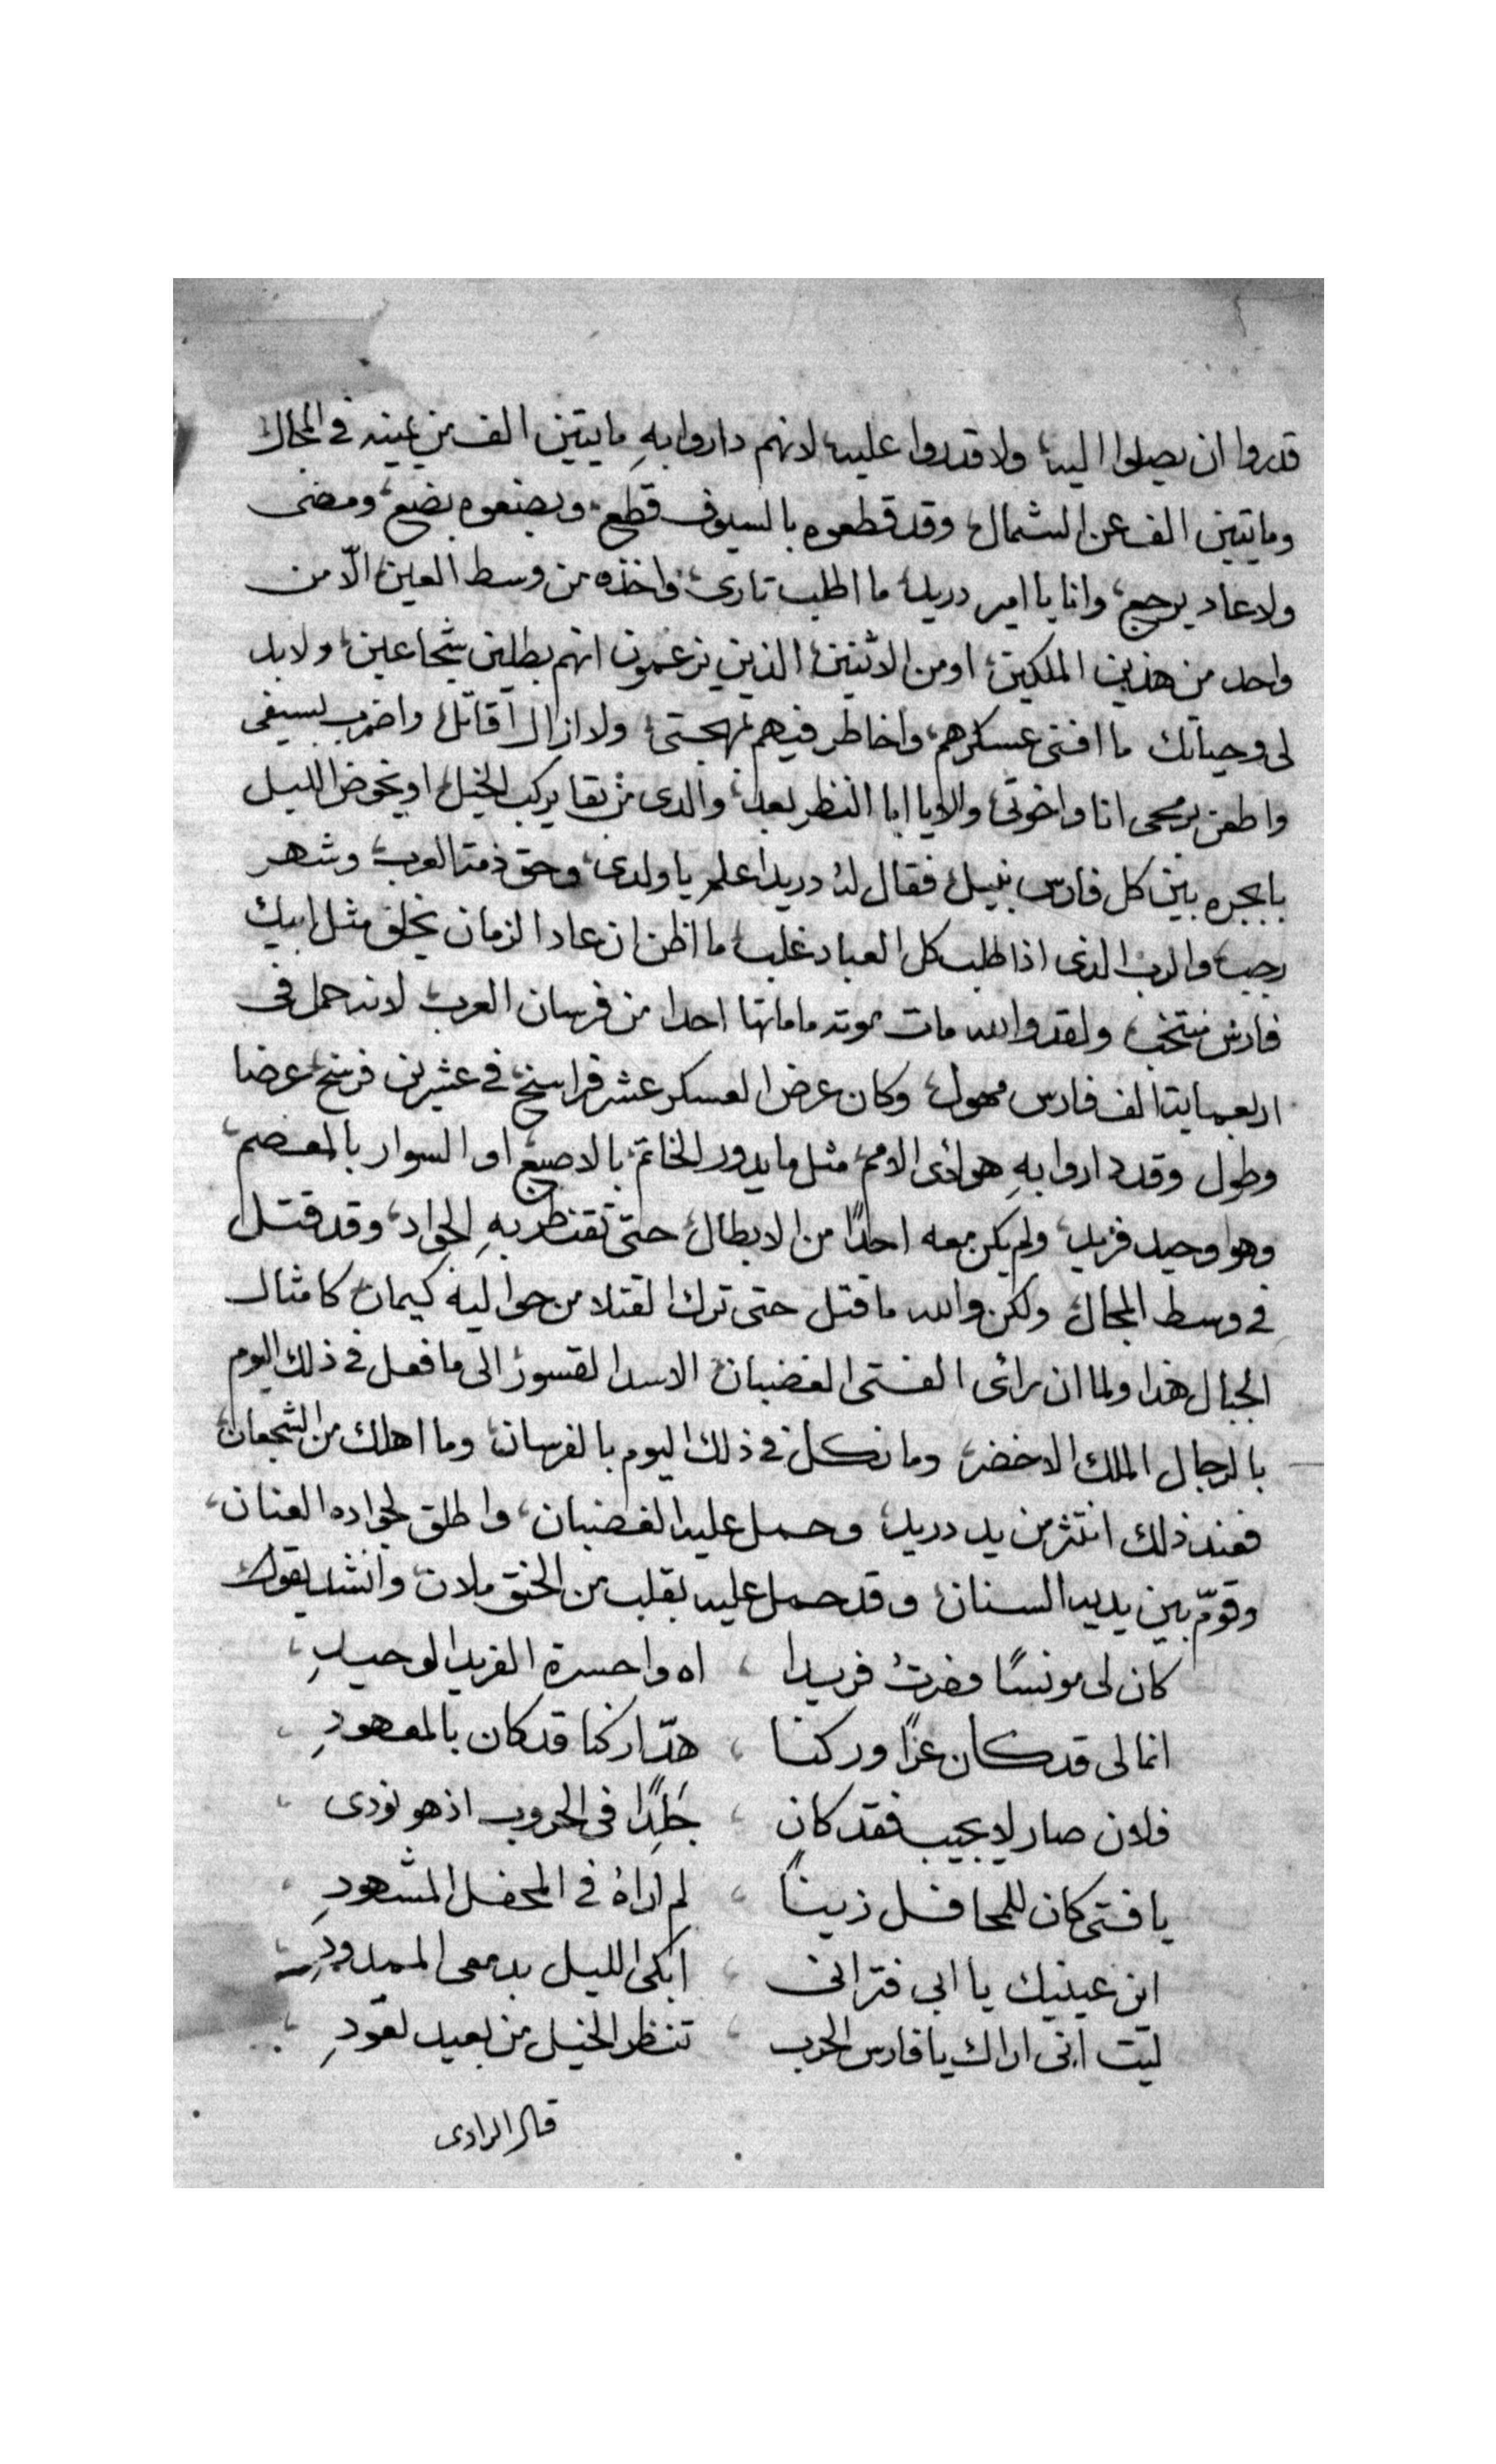 قدروا ان يصلوا اليه، ولا قدروا عليه، لانهم داروا بهِ مايتين الف من يمينه في المجال،
ومايتين الف عن الشمال، وقد قطعوه بالسيوف قطع، وبضعوه بضع، ومضى
ولا عاد يرجع، وانا يا امير دريد، ما اطلب تارى، واخذه من وسط العين، الّا من
واحد من هذين الملكين، او من الاثنين، الذين يزعمون انهم بطلين شجاعين، ولا بد
لى وحياتك ما افنى عسكرهم، واخاطر فيهم بمهجتى، ولا ازال اقاتل، واضرب بسيفى
واطعن برمحى انا واخوتى، والا يا ابا النظر بعد، والدى من بقا يركب الخيل، او يخوض الليل
بابجره بين كل فارس نبيل، فقال له دريد اعلم يا ولدى، وحق ذمة العرب، وشهر
رجب، والرب الذى اذا طلب كل العباد غلب، ما اظن ان عاد الزمان يخلق مثل ابيك
فارس منتخب، ولقد والله مات موته ما ماتها احدا من فرسان العرب، لانه حمل فى
اربعماية الف فارس مهول، وكان عرض العسكر عشر فراسخ، في عشرين فرسخ، عرضا
وطول وقد داروا بهِ هولائ الامم، مثل ما يدور الخاتم، بالاصبع، او السوار بالمعصم،
وهو وحيد فريد، ولم يكن معه احدًا من الابطال، حتى تقنطر بهِ الجواد، وقد قتل
في وسط المجال، ولكن والله ما قتل حتى ترك القتلا من حواليه كيمان، كامثال
الجبال هذا ولما ان رائ الفتى الغضبان، الاسد القسور، الى ما فعل في ذلك اليوم
بالرجال الملك الاخضر، وما نكل في ذلك اليوم بالفرسان، وما اهلك من الشجعان،
فعند ذلك انتثر من يد دريد، وحمل عليه الغضبان، واطلق لجواده العنان،
وقوّم بين يديه السنان، وقد حمل عليه بقلب من الحنق ملان، وانشد يقول
كان لى مونسًا فصرتُ فريدا ، اه واحسرة الفريد الوحيدِ،
انما لى قد كان عزًا وركنا ، هدّ اركنا قد كان بالمعهودِ،
فلان صار لا يجيب فقد كان ، جَلِدًا فى الحروب اذ هو نودى ،
يا فتى كان للمحافل زينًا ، لم اراهُ في المحفل المشهودِ ،
اين عينيك يا ابى فترانى ، ابكى الليل بدمعى الممدودِ
ليت انى اراك يا فارس الحرب ، تنظر الخيل من بعيد تعودِ ،
قال الراوى